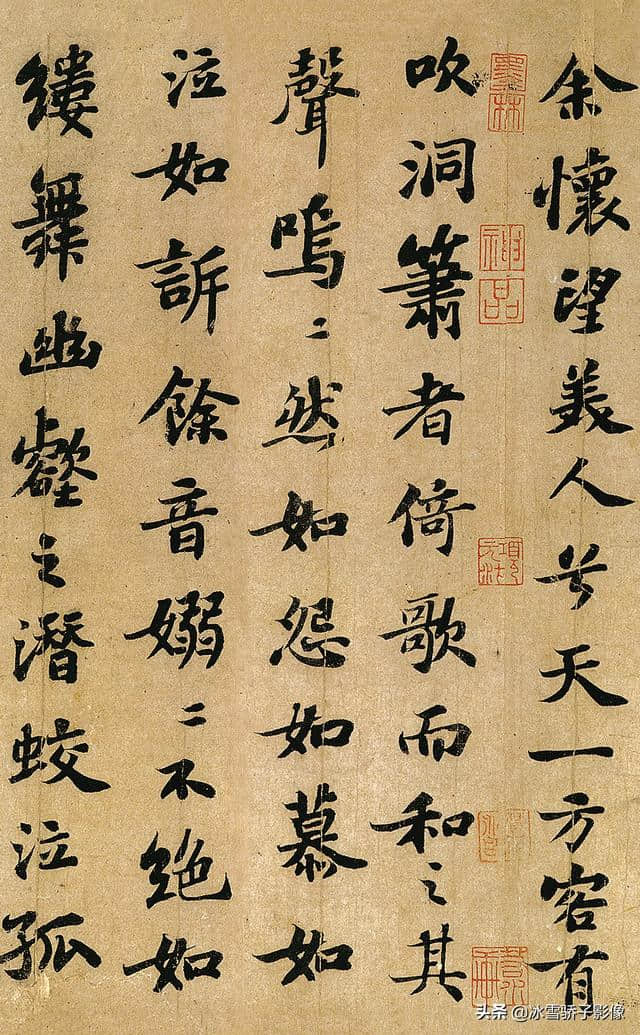 余懷望美人兮天一方客有
吹洞簫者倚歌而和之其
聲嗚〻然如怨如慕如
泣如訴餘音嫋〻不絶如
縷舞幽壑之潛蛟泣孤
墨林
神品
头条 @冰雪骄子影像